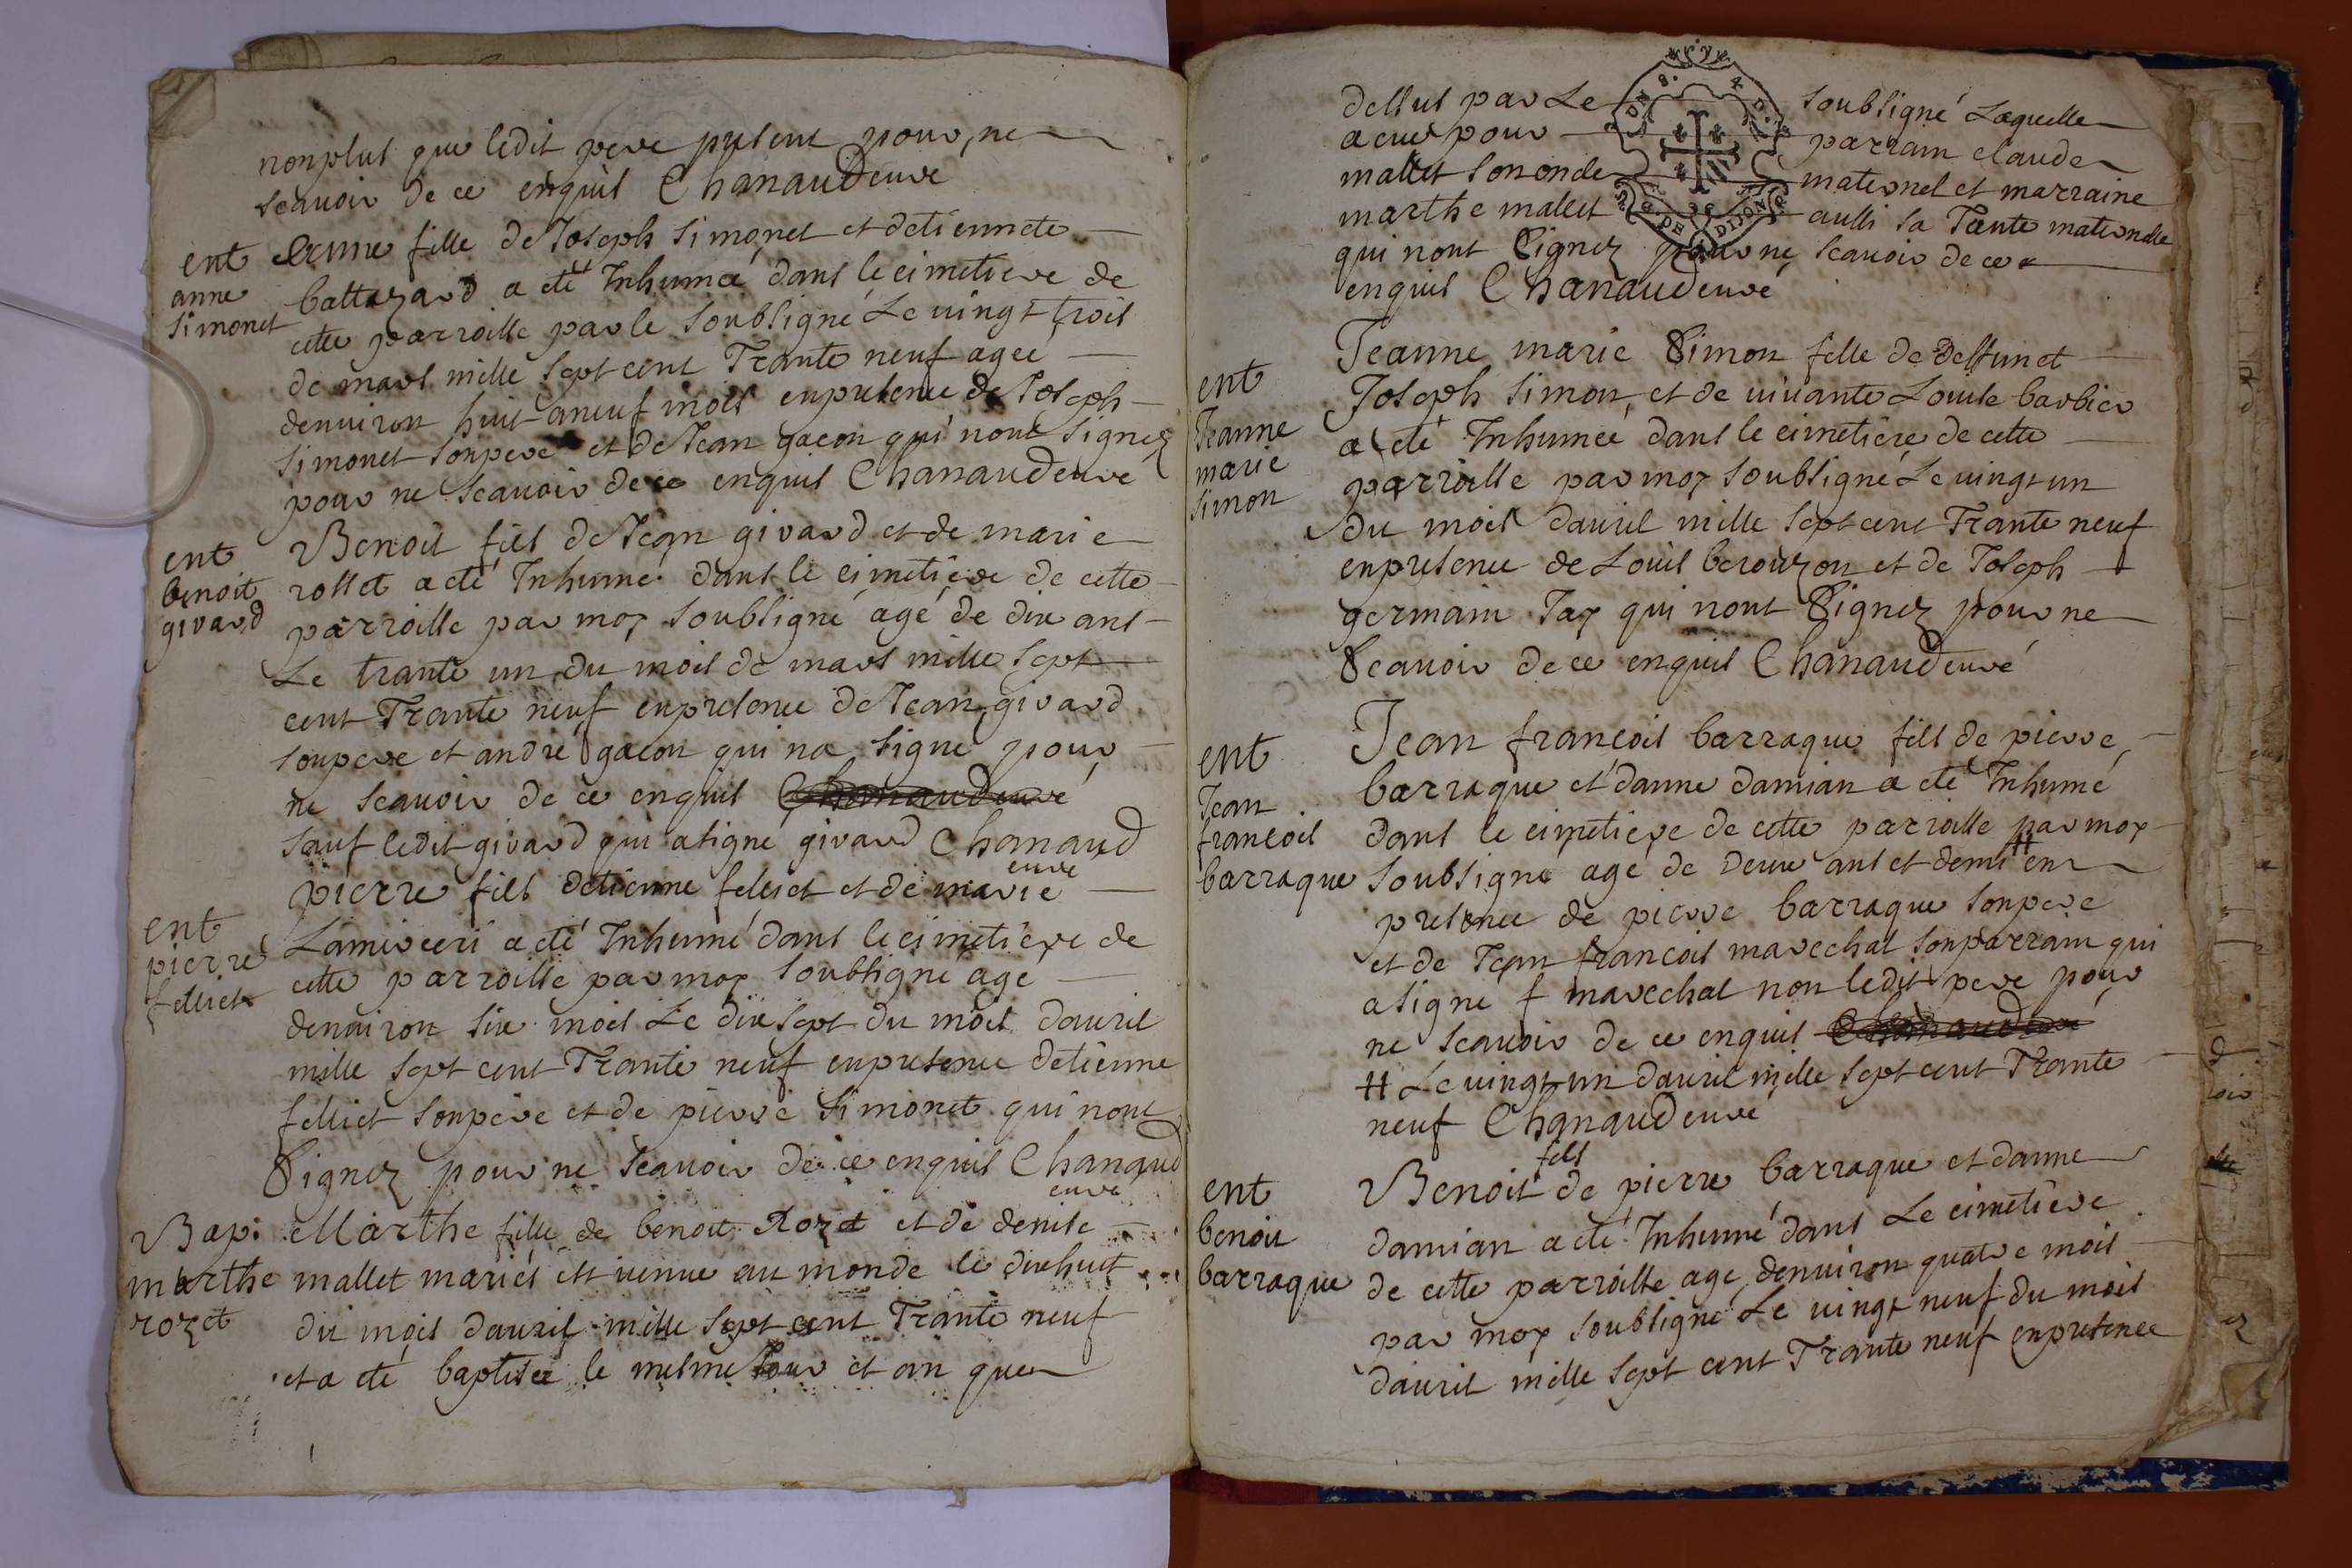 nonplus que ledit pere present pour ne
scauoir de ce enquis Chanaud cure
ent
anne
simonet
Anne fille de Joseph simonet et detiennete
battazard a eté Inhumeé dans le cimetiere de
cette parroisse par le soubsigné Le uingt trois
de mars mille sept cent Trante neuf ageé
denuiron huit aneuf mois enpresence de Joseph
simonet sonpere et de Jean gacon qui nont signez
pour ne scauoir de ce enquis Chanaud curé
ent
benoit
girard
Benoit fils de Jean girard et de marie
rollet a eté Inhumé dans le cimetiere de cette
parroisse par moy soubsigné agé de dix ans
Le trante un du mois de mars mille sept
cent Trante neuf enpresence de Jean girard
sonpere et andré gacon qui na signe pour
ne scauoir de ce enquis Chanaud curé
sauf ledit girard qui asigné girard Chanaud
cure
ent
pierre
felliet
pierre fils detienne felliet et de marie
Lamirceri a eté Inhumé dans le cimetiere de
cette parroisse par moy soubsigne age
denuiron six mois Le dix sept du mois dauril
mille sept cent Trante neuf enpresence detienne
felliet sonpere et de pierre simonet qui nont
signez pour ne scauoir de ce enquis Chanaud
cure
Bap:
marthe
rozet
Marthe fille de benoit Rozet et de denise
mallet mariés est uenue au monde le dixhuit
du mois dauril mille sept cent Trante neuf
et a eté baptiseé le mesme Jour et an que
dessus par Le soubsigné Laquelle
a eue pour parrain claude
mallet son oncle maternel et marraine
marthe mallet aussi sa Tante maternelle
qui nont signez pour ne scauoir de ce
enquis Chanaud curé
G. DE DIJON
ent
Jeanne
marie
simon
Jeanne marie simon fille de deffunct
Joseph simon et de uiuante Louise barbier
a eté Inhumeé dans le cimetiere de cette
parroisse par moy soubsigné Le uingt un
du mois dauril mille sept cent Trante neuf
enpresence de Louis berouzon et de Joseph
germain Jay qui nont signez pour ne
scauoir de ce enquis Chanaud curé
ent
Jean
francois
barraque
Jean francois barraque fils de pierre
barraque et danne damian a eté Inhumé
dans le cimetiere de cette parroisse par moy
soubsigné agé de deux ans et demi # en
presence de pierre barraque sonpere
et de Jean francois marechal sonparrain qui
asigné f marechal non ledit pere pour
ne scauoir de ce enquis Chanaud curé
# Le uingt un dauril mille sept cent Trante
neuf Chanaud curé
ent
benoit
barraque
fils
Benoit de pierre barraque et danne
damian a eté Inhumé dans Le cimetiere
de cette parroisse age denuiron quatre mois
par moy soubsigné Le uingt neuf du mois
dauril mille sept cent Trante neuf enpresence